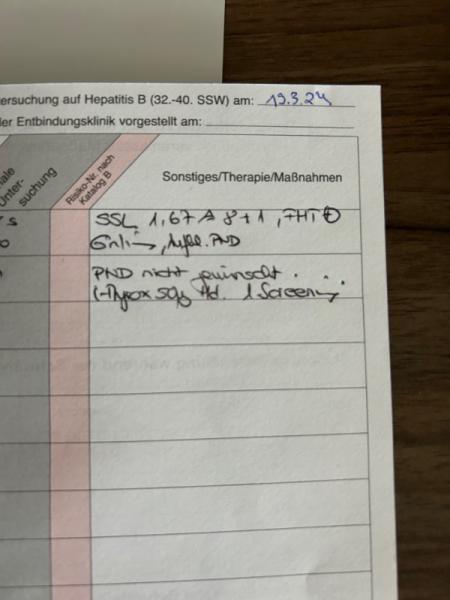 ersuchung auf Hepatitis B (32.-40. SSW) am: 19.3.24
er Entbindungsklinik vorgestellt am:
ale
Unter-
suchung
Risiko-Nr. nach
Katalog B
Sonstiges/Therapie/Maßnahmen
SSL 1,67 A 8+1, FHT ⊕
PND
PND nicht gewünscht.
1 Screening